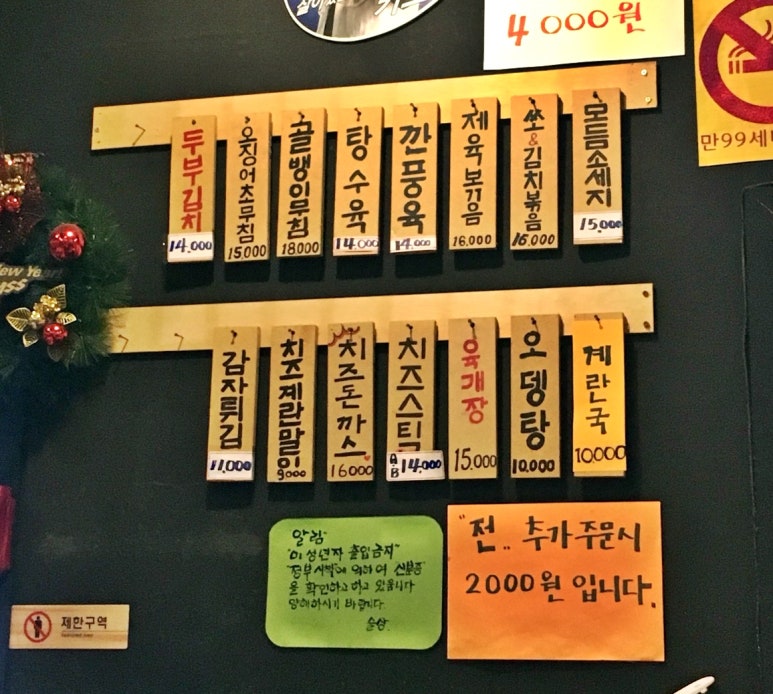 4000원
만99세
두부김치
14,000
오징어초무침
15,000
골뱅이무침
18,000
탕수육
14,000
깐풍육
14,000
제육볶음
16,000
쏘&김치볶음
16,000
모듬소세지
15,000
New Year
감자튀김
11,000
치즈계란말이
9000
치즈돈까스
16000
치즈스틱
A·B 14,000
육개장
15,000
오뎅탕
10,000
계란국
10,000
알림
"미성년자 출입금지"
정부시책에 의하여 신분증
을 확인하고 하고 있읍니다
양해하시기 바랍니다.
"전".. 추가 주문시
2000원 입니다.
제한구역